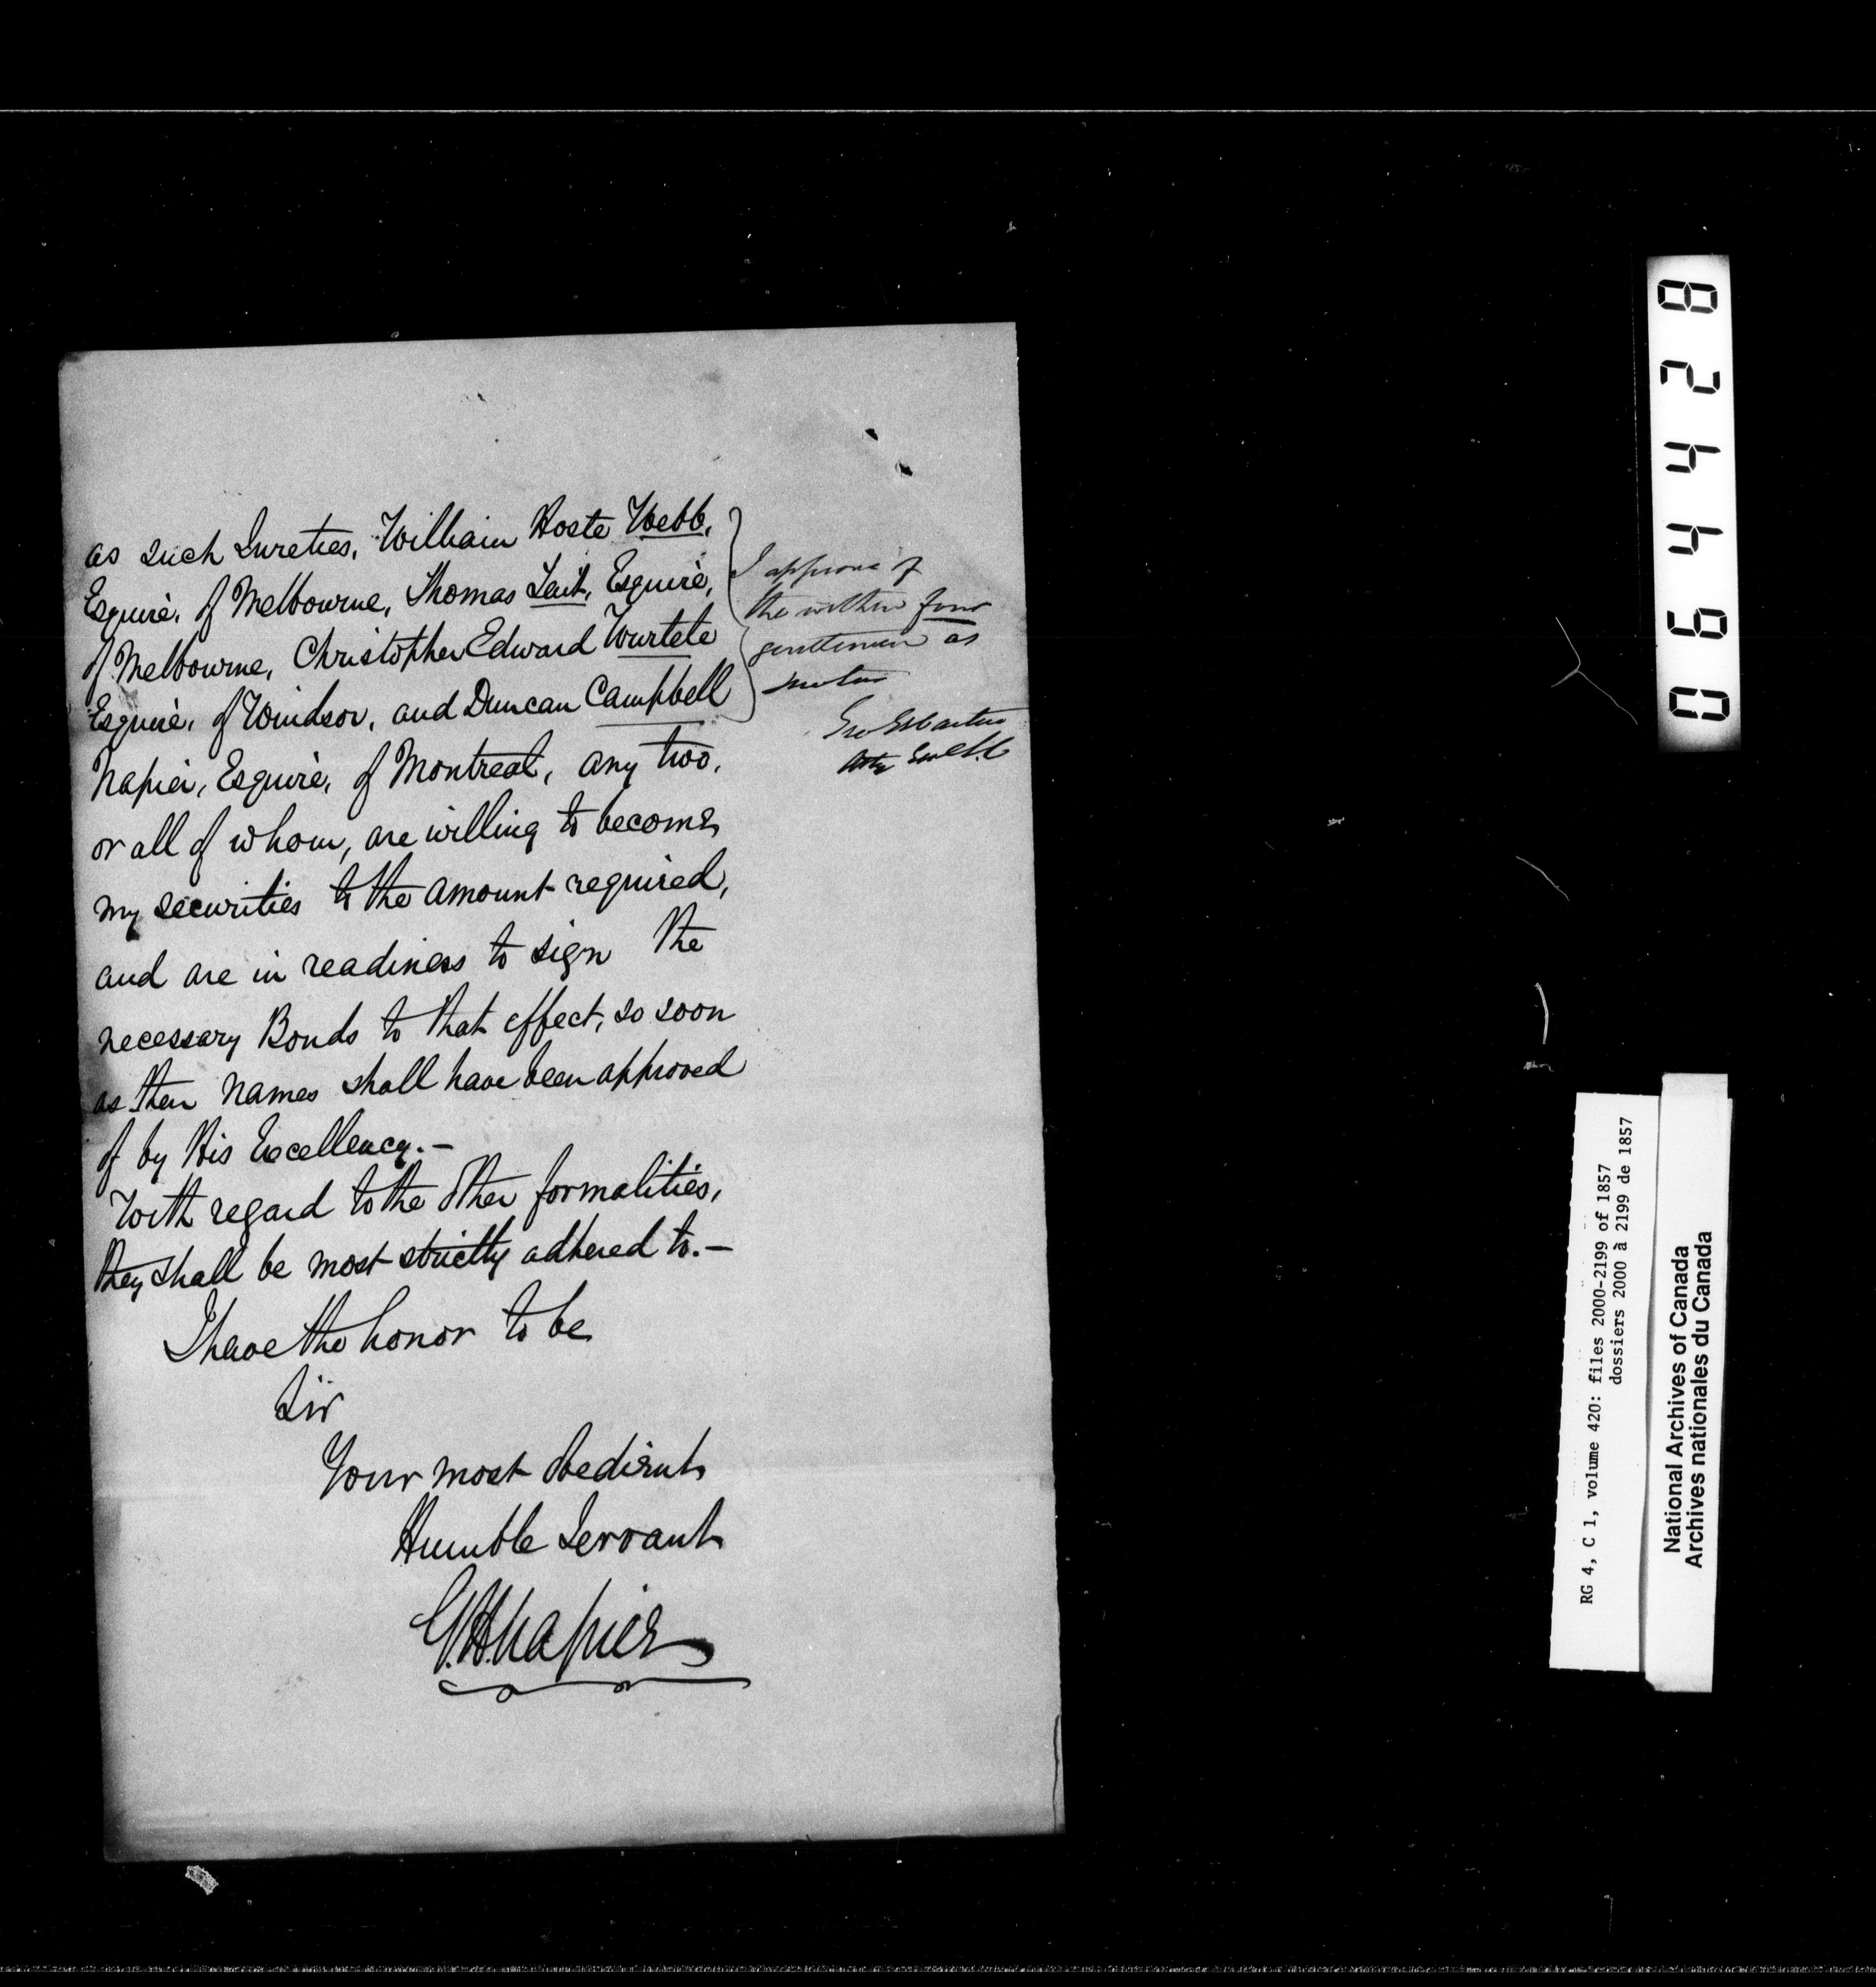 as such Sureties, William Hoste Webb,
Esquire, of Melbourne, Thomas Tait, Esquire,
of Melbourne, Christopher Edward Wurtele
Esquire, of Windsor, and Duncan Campbell
Napier, Esquire, of Montreal, any two,
or all of whom, are willing to become
my securities to the amount required,
and are in readiness to sign the
necessary Bonds to that effect, so soon
as their names shall have been approved
of by His Excellency.—
With regard to the other formalities,
they shall be most strictly adhered to.—
I have the honor to be
Sir
Your most obedient
Humble Servant
G.H. Napier
I approve of
the within four
gentlemen as
sureties
Geo E Cartier
Atty Genl L.C
064428
RG 4, C 1, volume 420: files 2000-2199 of 1857
dossiers 2000 à 2199 de 1857
National Archives of Canada
Archives nationales du Canada